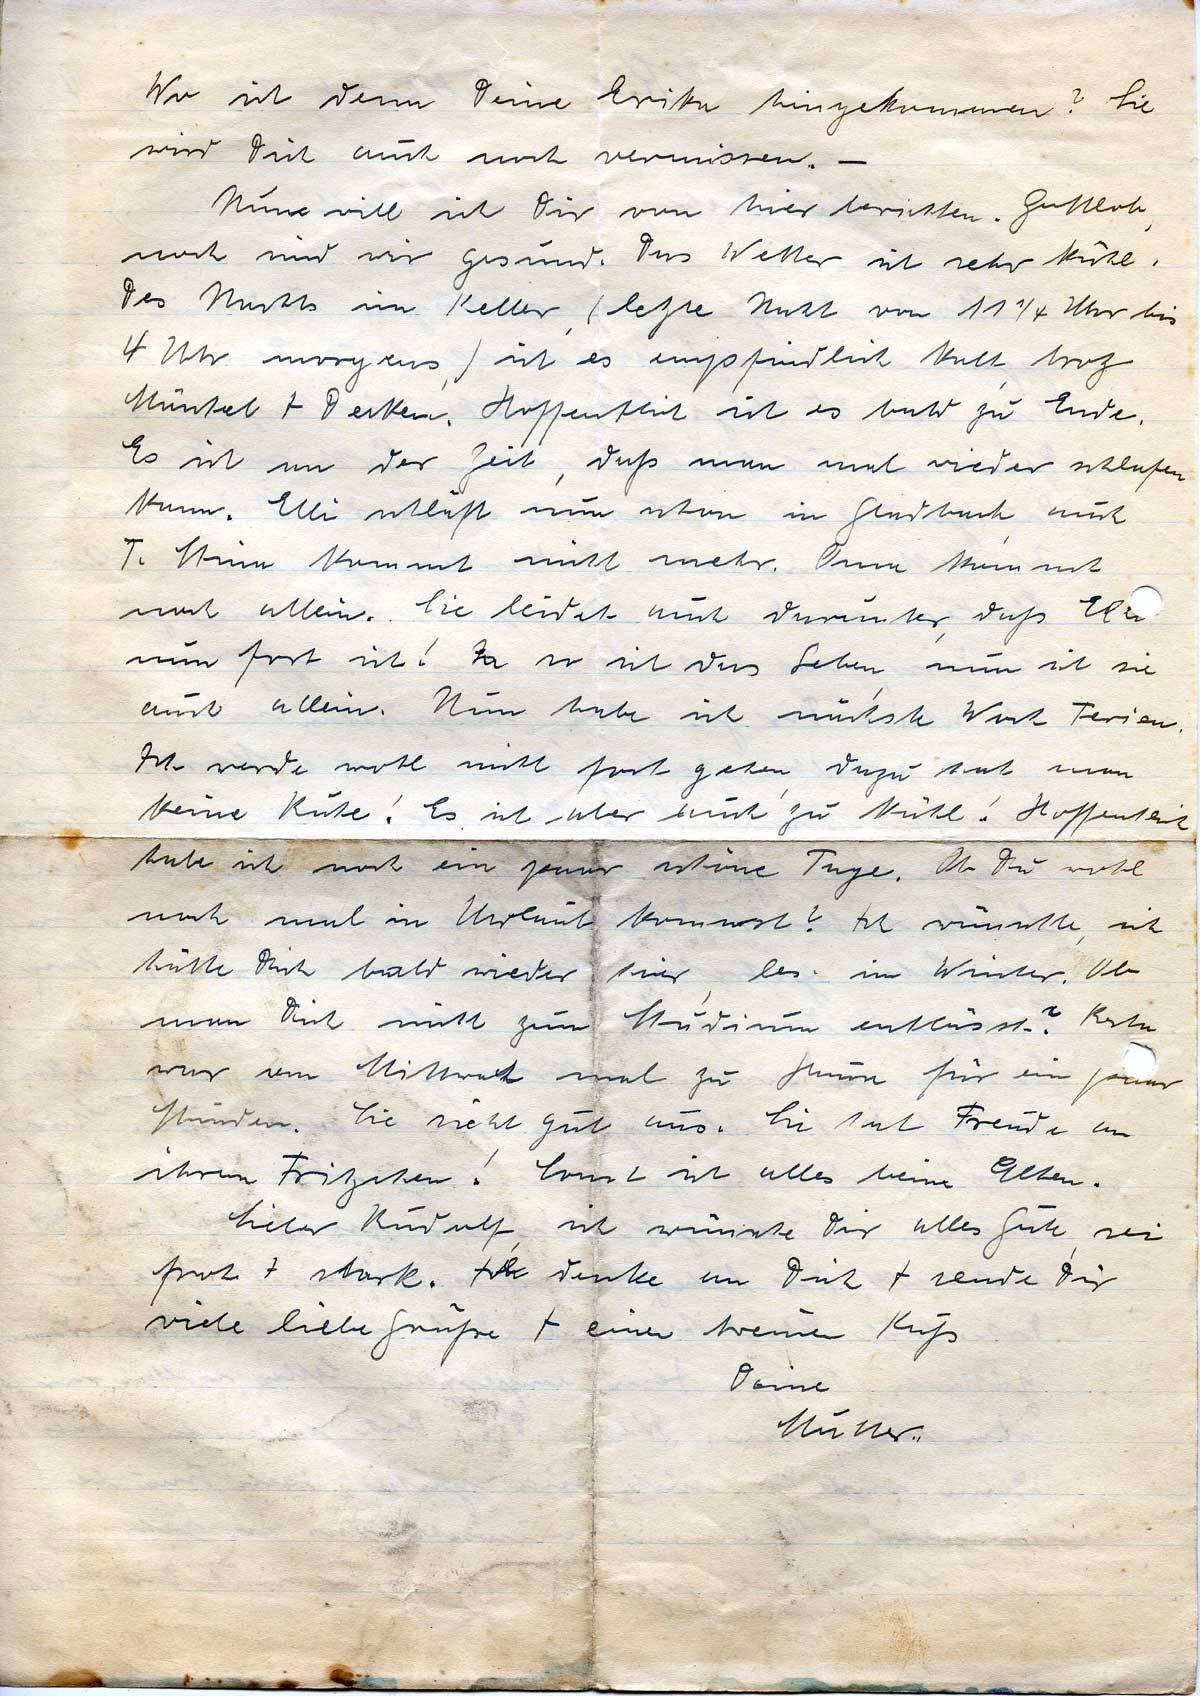 Wo ist denn Deine Erika hingekommen? Sie
wird Dich auch noch vermissen. —
Nun will ich Dir von hier berichten. Gottlob,
noch sind wir gesund. Das Wetter ist sehr kühl.
Des Nachts im Keller, (letzte Nacht von 11 1/4 Uhr bis
4 Uhr morgens,) ist es empfindlich kalt, trotz
Mäntel + Decken. Hoffentlich ist es bald zu Ende.
Es ist an der Zeit, daß man mal wieder schlafen
kann. Elli schläft nun schon in Gladbach, auch
T. Stina kommt nicht mehr. Oma kommt
noch allein. Sie leidet auch darunter, daß Elli
nun fort ist! Ja so ist das Leben, nun ist sie
auch allein. Nun habe ich nächste Woch Ferien.
Ich werde wohl nicht fort gehen, dazu hat man
keine Ruhe! Es ist aber auch zu kühl! Hoffentlich
habe ich noch ein paar schöne Tage. Ob Du wohl
noch mal in Urlaub kommst? Ich wünschte, ich
hätte Dich bald wieder hier, bes. im Winter. Ob
man Dich nicht zum Studium entlässt? Herta
war am Mittwoch mal zu Haus für ein paar
Stunden. Sie sieht gut aus. Sie hat Freude an
ihrem Fritzchen! Sonst ist alles beim Alten.
Lieber Rudolf, ich wünsche Dir alles Gute, sei
froh + stark. Ich denke an Dich + sende Dir
viele liebe Grüße + einen Kuß
Deine
Mutter.